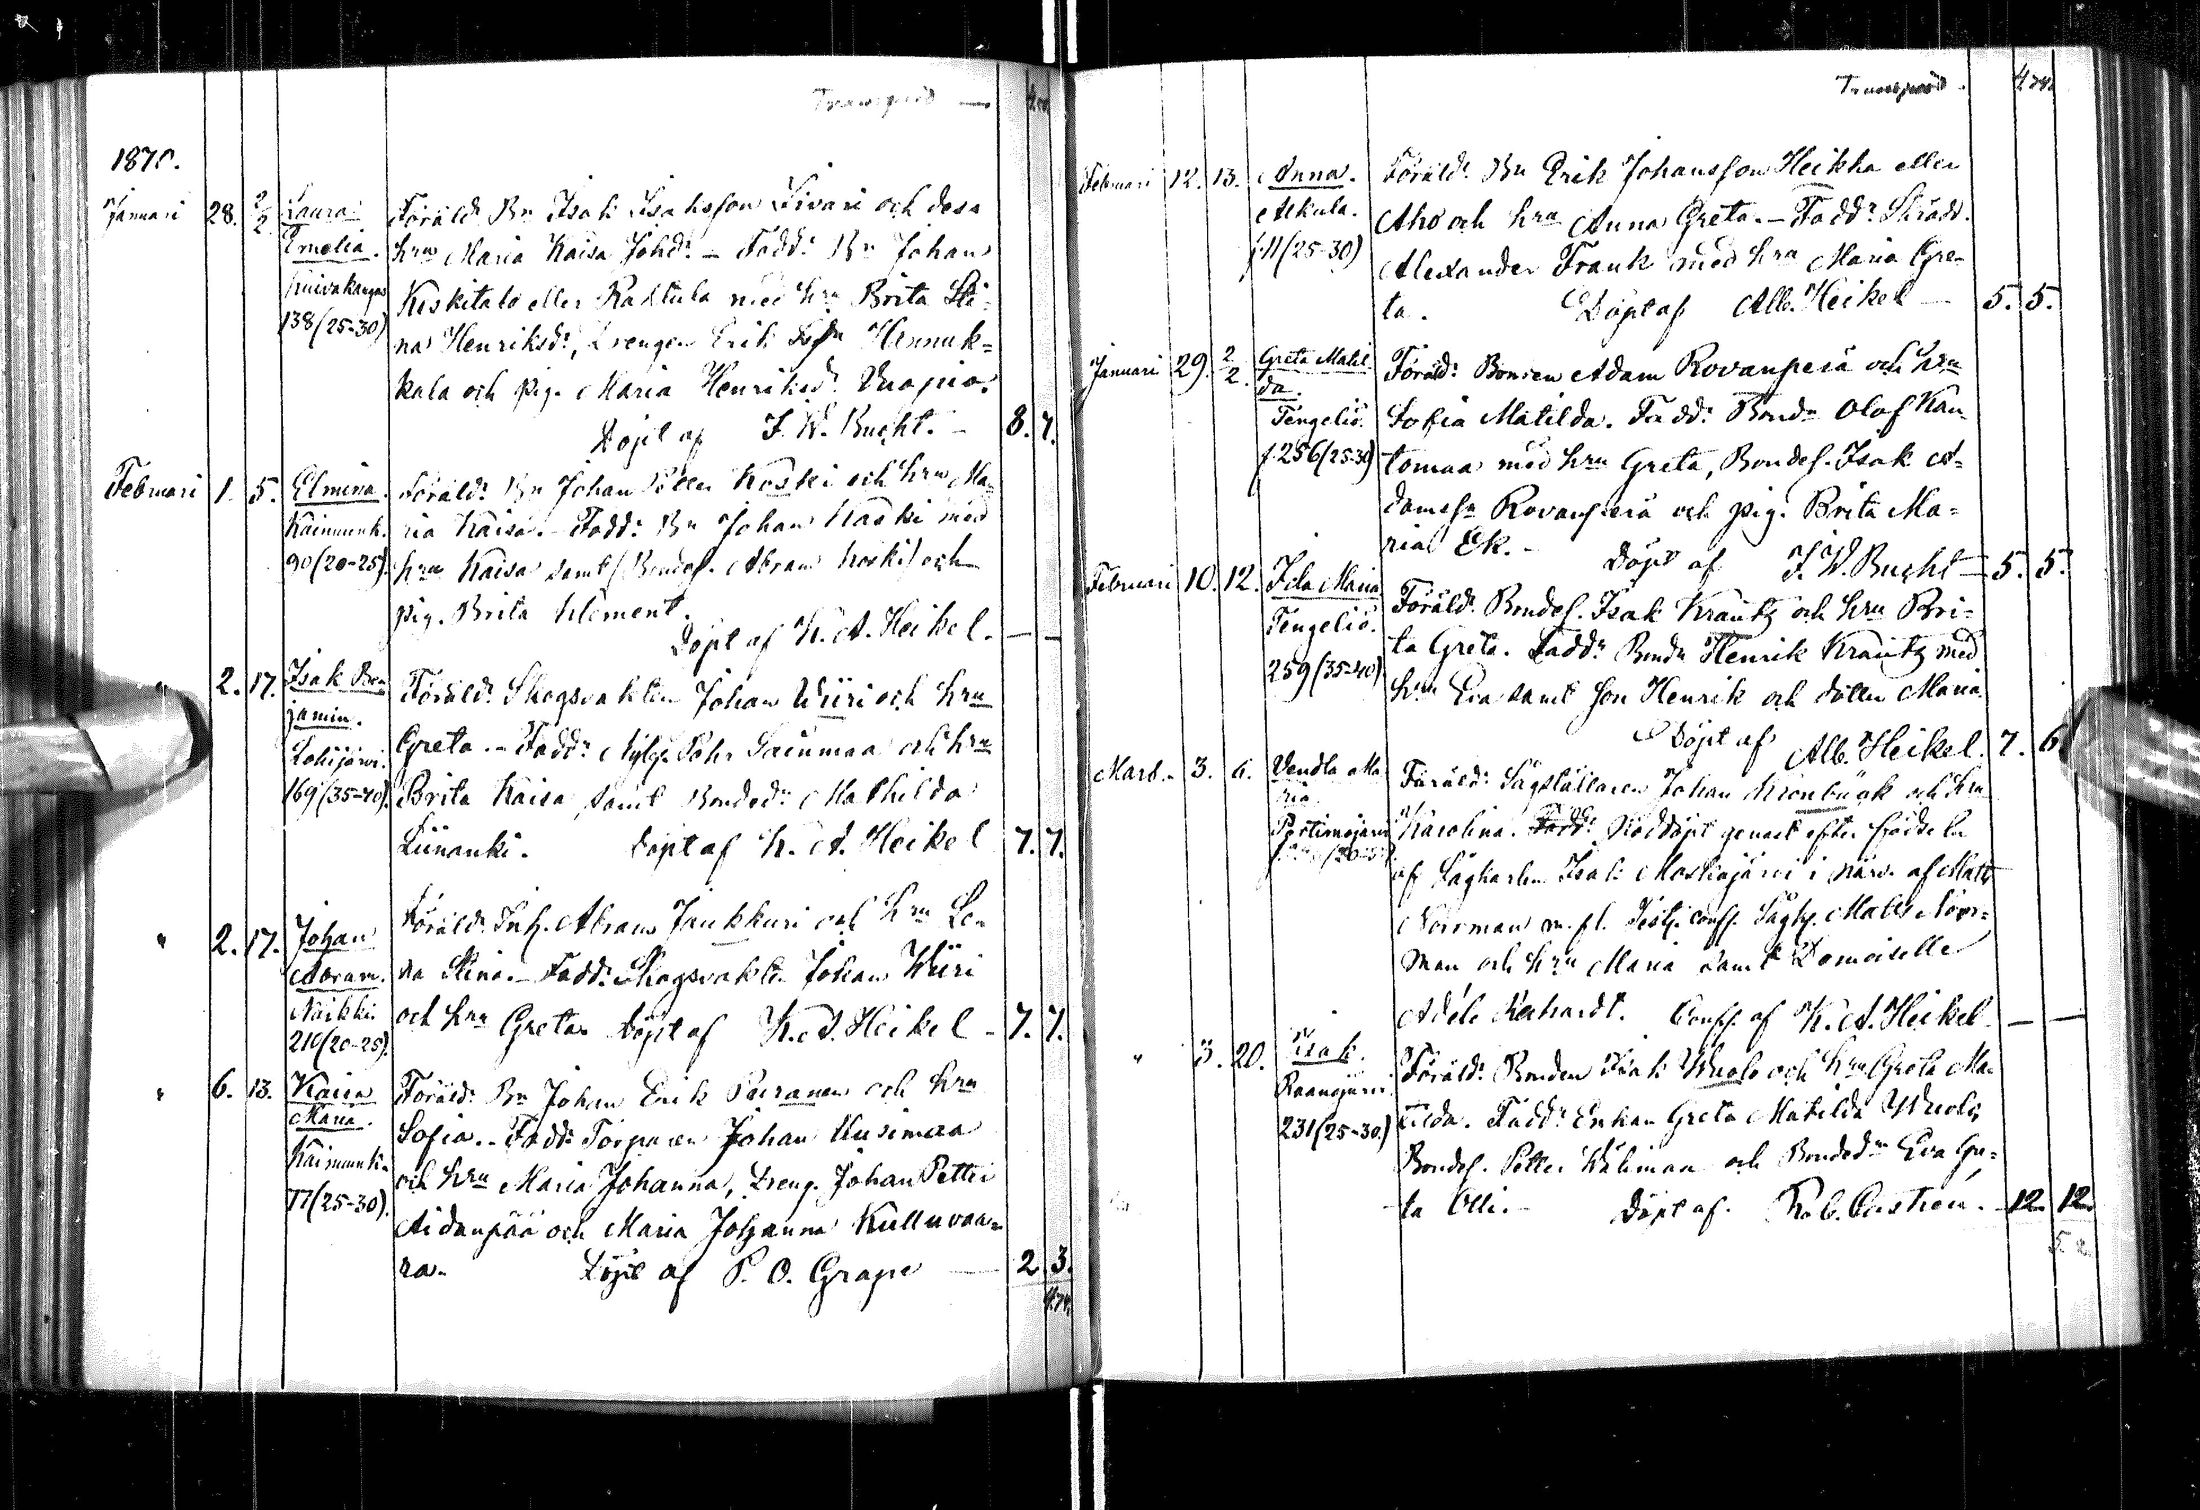 Transpord —
1870.
Januari 28. 2/2 Laura Emelia. Kuivakangas 138 (25-30)
Föräld: Bn Isak Isaksson Livari och dess
hru Maria Kaisa Johd: — Fadd: Bn Johan
Keskitalo eller Rautula med hru Brita Sti-
na Henriksd:, Drengen Erik Hennuk=
kala och pig. Maria Henriksd: Vuopio.
Döpt af F. W. Bucht. — 8. 7.
Februari 1. 5. Elmina. Kainuunk. 90 (20-25).
Föräld: Bn Johan Petter Koski och hru Ma-
ria Kaisa. — Fadd: Bn Johan Koski med
hru Kaisa samt (Bondes. Abram Koski) och
pig. Brita Klement.
Döpt af K. A. Heikel. — —
" 2. 17. Isak Ben
jamin. Lohijärvi. 169 (35-40).
Föräld: Skogsvakten Johan Wiiri och hru
Greta. — Fadd: Nybgn Pehr Sainmaa och hru
Brita Kaisa samt Bonded: Mathilda
Liinanki. Döpt af K. A. Heikel 7. 7.
" 2. 17. Johan Abram. Naikki. 210 (20-25).
Föräld: Inh. Abram Jaukkuri och hru Le-
na Stina. — Fadd: Skogsvakten Johan Wiiri
och hru Greta. Döpt af K. A. Heikel — 7. 7.
" 6. 13. Kaisa Maria. Kainuunk. 77 (25-30).
Föräld: Bn Johan Erik Pairanen och hru
Sofia. — Fadd: Torparen Johan Kusimaa
och hru Maria Johanna, Dreng. Johan Petter
Aidanpää och Maria Johanna Kulluvaa-
ra. Döpt af P. O. Grape — 2. 3.
474.
Transpord. 474.
Februari 12. 13. Anna. Alkula. f. 11 (25-30)
Föräld: Bn Erik Johansson Heikka eller
Aho och hru Anna Greta. — Fadd: Skrädd.
Alexander Frank med hru Maria Gre-
ta. Döpt af Alb. Heikel — 5. 5.
Januari 29. 2/2. Greta Matil-
da. Tengeliö. f. 256 (25-30)
Föräld: Bonden Adam Rovanperä och hru
Sofia Matilda. Fadd: Bondn Olof Kan-
tomaa med hru Greta, Bondes. Isak A-
damsn Rovanperä och pig. Brita Ma-
ria Ek. — Döpt af F. W. Bucht — 5. 5.
Februari 10. 12. Ida Maria Tengeliö. 259 (35-40)
Föräld: Bondes. Isak Krautz och hru Bri-
ta Greta. Fadd: Bondn Henrik Krautz med
hru Eva samt son Henrik och dotter Maria.
Döpt af Alb. Heikel. 7. 6.
Mars. 3. 6. Vendla Ma
ria. Portimojärvi
Föräld: Sågställaren Johan Kronbäck och hru
Karolina. Fadd: Nöddöpt genast efter födseln
af Sågkarlen Isak Moskojärvi i närv. af Matts
Norrman m. fl. Test. conf. Sågk. Matts Norr-
man och hru Maria samt Demoiselle
Adéle Gerhardt. Conf. af K. A. Heikel. — —
" 3. 20. Isak. Raanujärvi 231 (25-30)
Föräld: Bonden Isak Wuolo och hru Greta Ma-
tilda. Fadd: Enkan Greta Matilda Wuolo,
Bondes. Petter Wälimaa och Bonded: Eva Gre-
ta Olli. — Döpt af Rob. Castrén. — 12. 12.